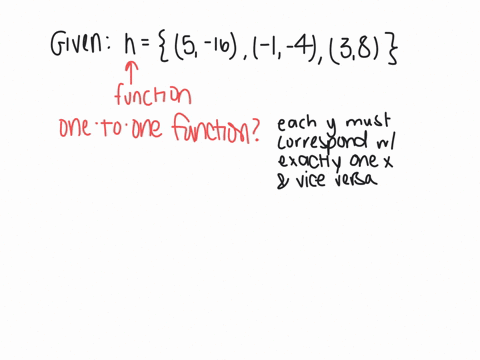 Given: h = { (5, -16), (-1, -4), (3,8) }
function
one-to-one function?
each y must
correspond w/
exactly one x
& vice versa